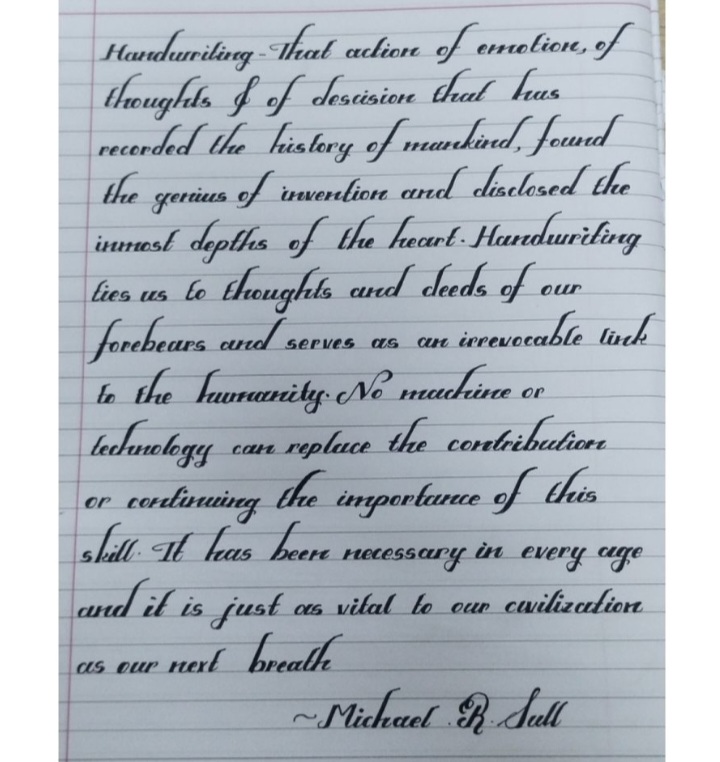 Handwriting - That action of emotion, of
thoughts & of descision that has
recorded the history of mankind, found
the genius of invention and disclosed the
inmost depths of the heart. Handwriting
ties us to thoughts and deeds of our
forebears and serves as an irrevocable link
to the humanity. No machine or
technology can replace the contribution
or continuing the importance of this
skill. It has been necessary in every age
and it is just as vital to our civilization
as our next breath
~Michael R. Sull